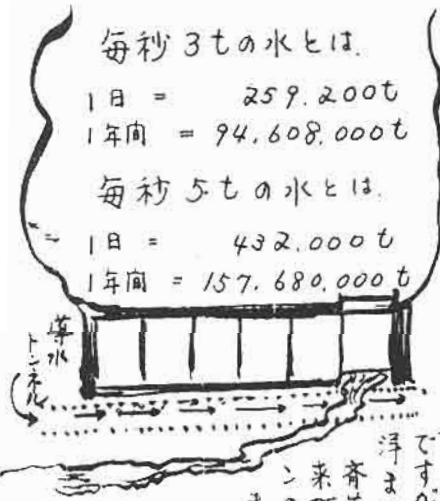 毎秒3tの水とは.
1日 = 259.200t
1年間 = 94.608.000t
毎秒5tの水とは.
1日 = 432.000t
1年間 = 157.680.000t
導水
トンネル
ですが
洋ま
来